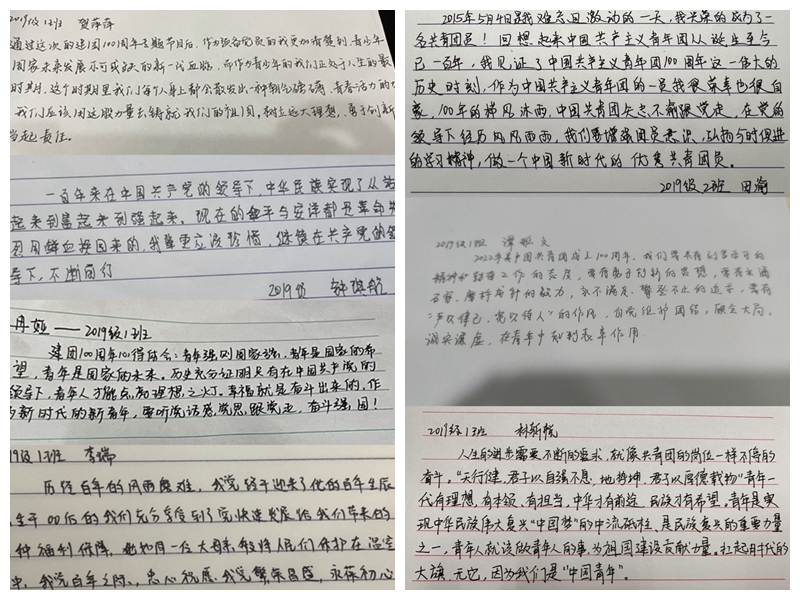 2019级12班 贺萍萍
通过这次的建团100周年主题节目后,作为预备党员的我更加清楚到,青少年
国家未来发展不可或缺的新一代血脉.而作为青少年的我们正处于人生的最
时期,这个时期里我们每个人身上都会散发出一种朝气磅礴、青春活力的力
我们应该用这股力量去铸就我们的祖国,树立远大理想,勇于创新
当起责任.
一百年来在中国共产党的领导下,中华民族实现了从站
起来到富起来到强起来.现在的和平与安详都是革命先
烈用鲜血换回来的,我辈更应该珍惜,继续在共产党的领
导下,不断前行
2019级
冉娅——2019级1班
建团100周年101得体会:青年强则国家强,青年是国家的希
望,青年是国家的未来。历史充分证明只有在中国共产党的
领导下,青年人才能点燃理想之灯。幸福就是奋斗出来的,作
为新时代的新青年,要听党话感党恩跟党走,奋斗强国!
19级1班 李瑞
历经百年的风雨磨难,我党终于迎来了他的百年生辰
生于00后的我们充分享受到了党快速发展给我们带来的
种福利保障,她如同一位大母亲,
中,我党百年之际,忠心祝愿,我党繁荣昌盛,永葆初心
2015年5月4日是我难忘且激动的一天,我光荣的成为了一
名共青团员!回想起来中国共产主义青年团从诞生至今
已一百年,我见证了中国共产主义青年团100周年这一伟大的
历史时刻,作为中国共产主义青年团的一员我很荣幸也很自
豪,100年的栉风沐雨,中国共青团矢志不渝跟党走,在党的
领导下经历风风雨雨,我们要增强团员意识,弘扬与时俱进
的学习精神,做一个中国新时代的优秀共青团员。
2019级2班 田瀚
2019级1班 谭
2022年是中国共青团成立100周年,我们要具有刻苦学习的
精神和 工作的态度,要有勇于创新的思想,要有
、 的毅力,永不满足、攀登不止的追求,要有
“严以律己,宽以待人”的作风,自觉维护团结,顾全大局,
诚实谦虚,在青年中起到表率作用.
2019级13班 林新悦
人生的进步需要不断的要求,就像共青团的岗位一样不停的
奋斗。“天行健,君子以自强不息,地势坤,君子以厚德载物”青年一
代有理想,有本领,有担当,中华才有前途,民族才有希望。青年是实
现中华民族伟大复兴“中国梦”的中流砥柱,是民族复兴的重要力量
之一,青年人就该做青年人的事,为祖国建设贡献力量。扛起时代的
大旗,无它,因为我们是“中国青年”。